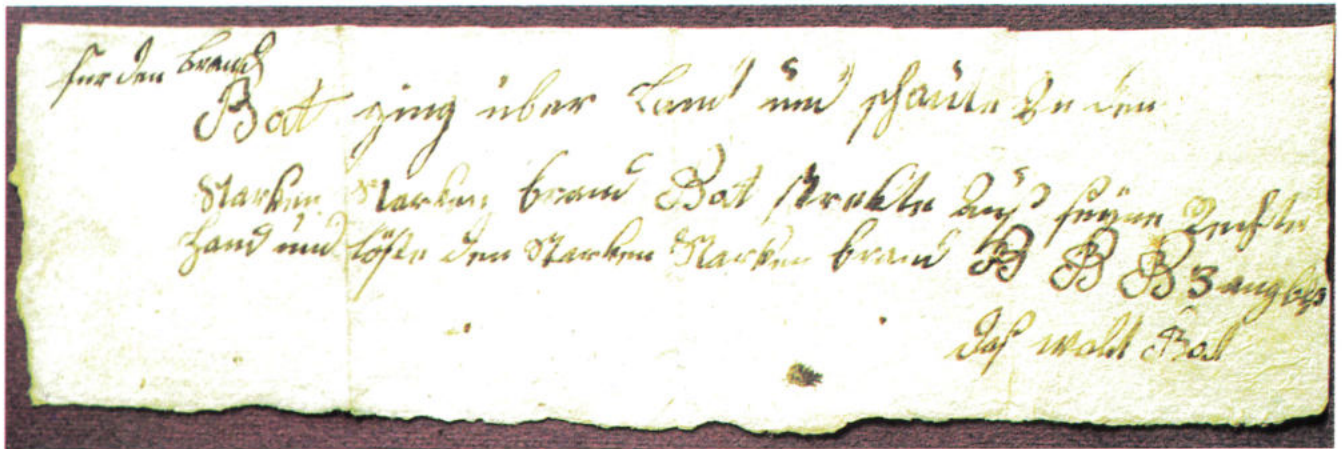 für den brand
Got ging über Land und schaute In den
Starken Starken brand Got strekte Auß seyne Rechte
Hand und löschte den Starken Starken brand G G G 3
daß walt Got